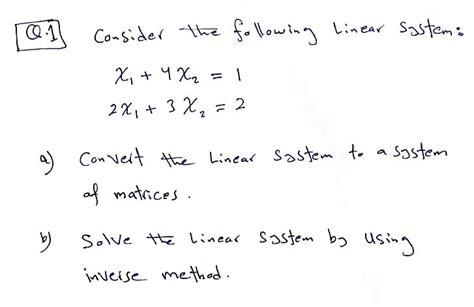 Q.1 Consider the following Linear System:
x₁ + 4x₂ = 1
2x₁ + 3x₂ = 2
a) Convert the Linear System to a system
of matrices.
b) Solve the Linear System by using
inverse method.